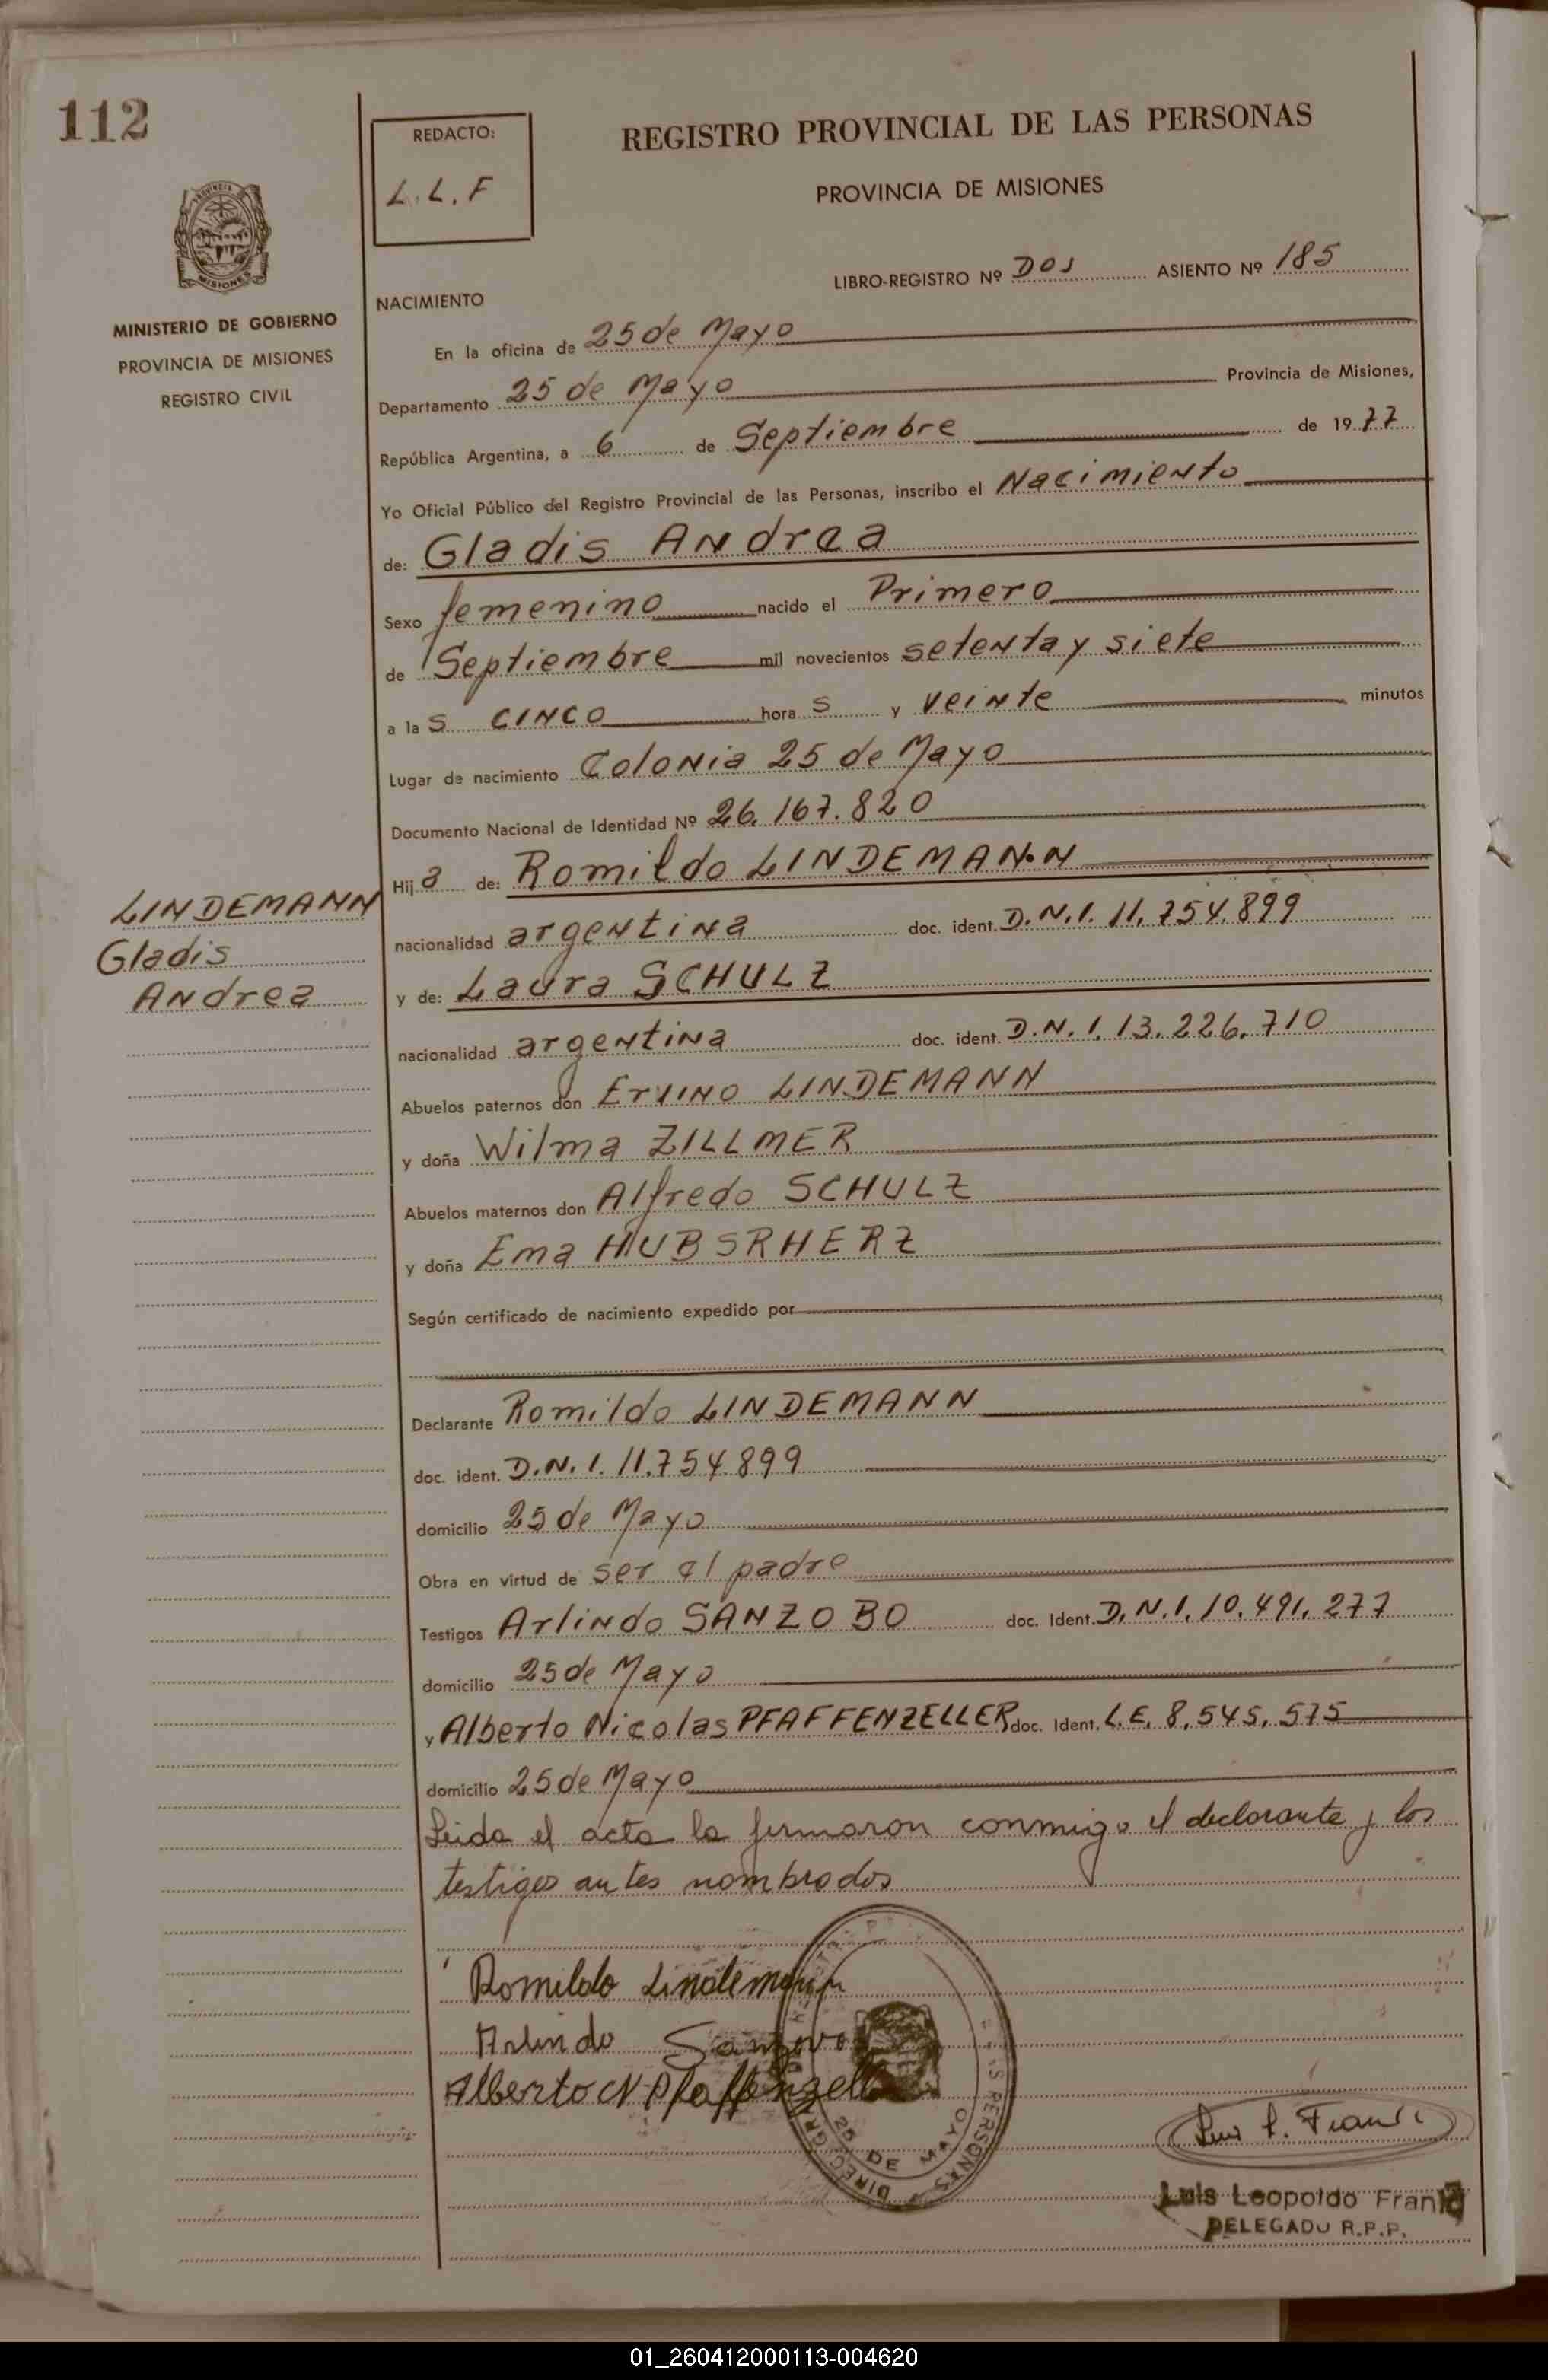 112
REDACTO:
L.L.F
REGISTRO PROVINCIAL DE LAS PERSONAS
PROVINCIA DE MISIONES
MISIONES
MINISTERIO DE GOBIERNO
PROVINCIA DE MISIONES
REGISTRO CIVIL
LIBRO-REGISTRO Nº DOS ASIENTO Nº 185
NACIMIENTO
En la oficina de 25 de Mayo
Departamento 25 de Mayo Provincia de Misiones,
República Argentina, a 6 de Septiembre de 1977
Yo Oficial Público del Registro Provincial de las Personas, inscribo el Nacimiento
de: Gladis Andrea
Sexo femenino nacido el Primero
de Septiembre mil novecientos setenta y siete
a las cinco horas y veinte minutos
Lugar de nacimiento Colonia 25 de Mayo
Documento Nacional de Identidad Nº 26.167.820
Hija de: Romildo LINDEMANN
LINDEMANN
Gladis
Andrea
nacionalidad argentina doc. ident. D.N.I. 11.754.899
y de: Laura SCHULZ
nacionalidad argentina doc. ident. D.N.I. 13.226.710
Abuelos paternos don Ervino LINDEMANN
y doña Wilma ZILLMER
Abuelos maternos don Alfredo SCHULZ
y doña Ema HUBSRHERZ
Según certificado de nacimiento expedido por
Declarante Romildo LINDEMANN
doc. ident. D.N.I. 11.754.899
domicilio 25 de Mayo
Obra en virtud de ser el padre
Testigos Arlindo SANZOBO doc. Ident. D.N.I. 10.491.277
domicilio 25 de Mayo
y Alberto Nicolas PFAFFENZELLER doc. Ident. L.E. 8.545.575
domicilio 25 de Mayo
Leida el acta la firmaron conmigo el declarante y los
testigos antes nombrados
Romildo Lindemann
Arlindo Sanzovo
Alberto N Pfaffenzeller
25 DE MAYO
Luis L. Franke
Luis Leopoldo Frank
DELEGADO R.P.P.
01_260412000113-004620